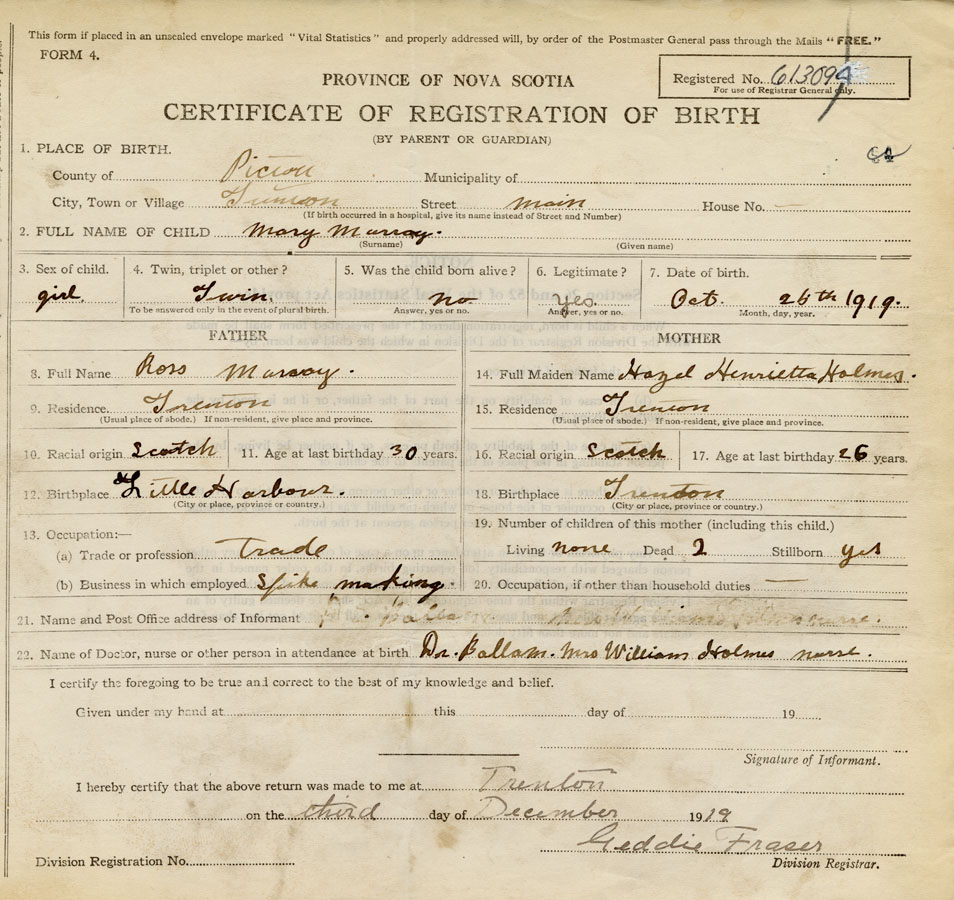 This form if placed in an unsealed envelope marked "Vital Statistics" and properly addressed will, by order of the Postmaster General pass through the Mails "FREE."
FORM 4.
Registered No. 613094
For use of Registrar General only.
PROVINCE OF NOVA SCOTIA
CERTIFICATE OF REGISTRATION OF BIRTH
(BY PARENT OR GUARDIAN)
1. PLACE OF BIRTH.
County of Pictou Municipality of
City, Town or Village Trenton Street main House No. —
(If birth occurred in a hospital, give its name instead of Street and Number)
2. FULL NAME OF CHILD Mary Murray.
(Surname) (Given name)
3. Sex of child. 4. Twin, triplet or other? 5. Was the child born alive? 6. Legitimate? 7. Date of birth.
girl. Twin. no yes. Oct. 26th 1919.
To be answered only in the event of plural birth. Answer, yes or no. Answer, yes or no. Month, day, year.
FATHER MOTHER
8. Full Name Ross Murray. 14. Full Maiden Name Hazel Henrietta Holmes.
9. Residence. Trenton 15. Residence Trenton
(Usual place of abode.) If non-resident, give place and province. (Usual place of abode.) If non-resident, give place and province.
10. Racial origin Scotch 11. Age at last birthday 30 years. 16. Racial origin Scotch 17. Age at last birthday 26 years.
12. Birthplace Little Harbour. 18. Birthplace Trenton
(City or place, province or country.) (City or place, province or country.)
13. Occupation:— 19. Number of children of this mother (including this child.)
(a) Trade or profession Trade Living none Dead 2 Stillborn yes
(b) Business in which employed Spike making. 20. Occupation, if other than household duties —
21. Name and Post Office address of Informant
22. Name of Doctor, nurse or other person in attendance at birth Dr. Ballam. Mrs William Holmes nurse.
I certify the foregoing to be true and correct to the best of my knowledge and belief.
Given under my hand at this day of 19
Signature of Informant.
I hereby certify that the above return was made to me at Trenton
on the third day of December 1919
Geddie Fraser
Division Registration No. Division Registrar.